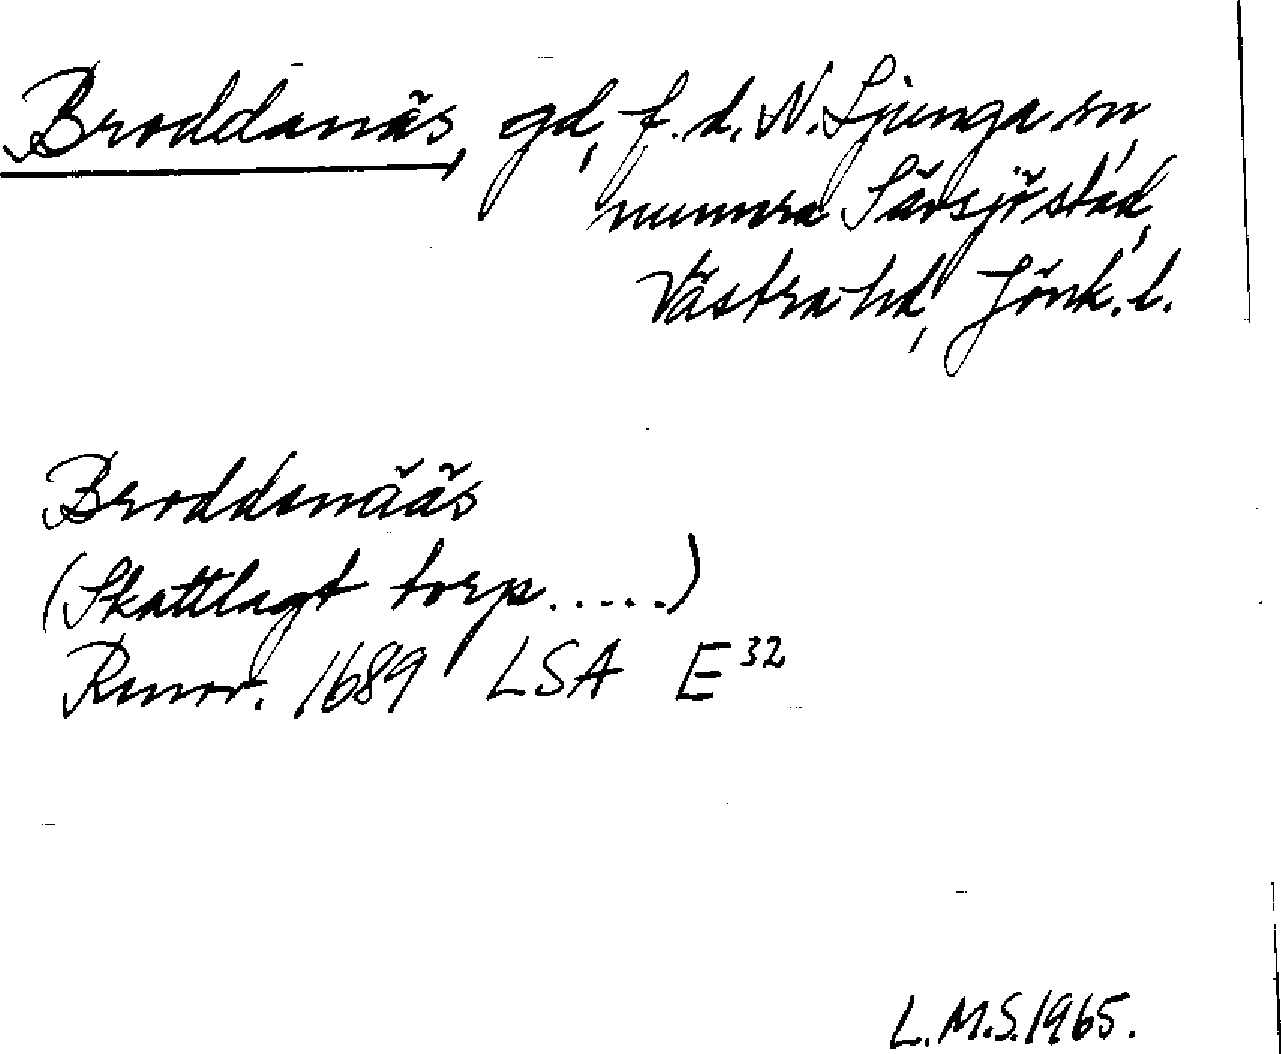 Broddanäs, gd, f. d. N. Ljunga sn,
numera Sävsjö stad,
Västra hd, Jönk. l.
Broddanääs
(Skattlagt torp.....)
Rannr. 1689 LSA E32
L.M.S. 1965.